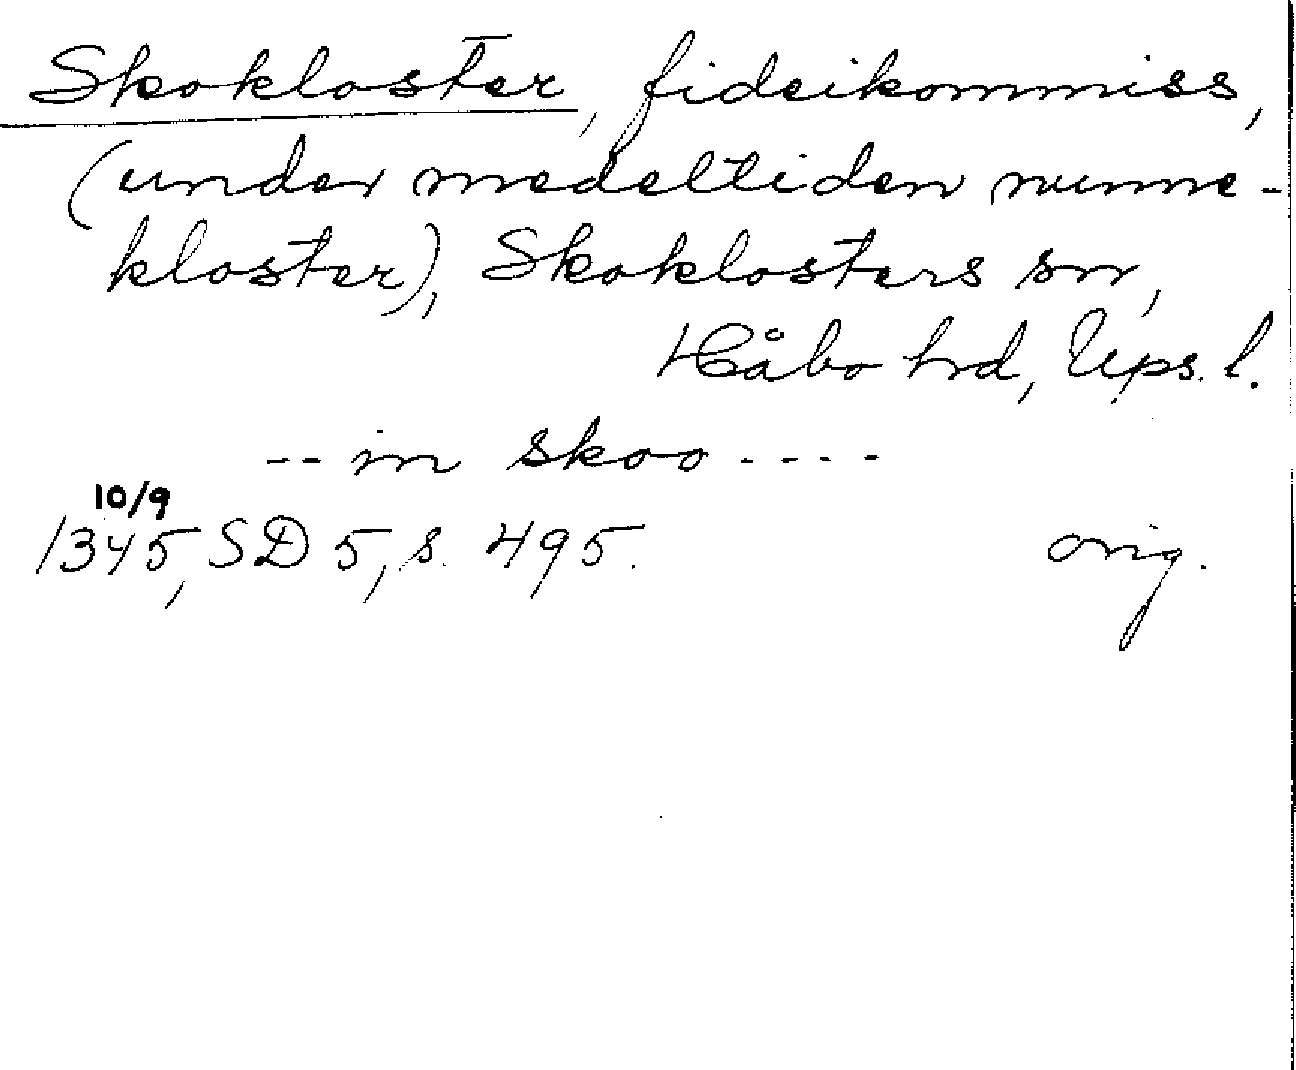 Skokloster, fideikommiss,
(under medeltiden nunne-
kloster), Skoklosters sn,
Håbo hd, Ups. l.
-- in skoo ----
10/9
1345, SD 5, s. 495. orig.